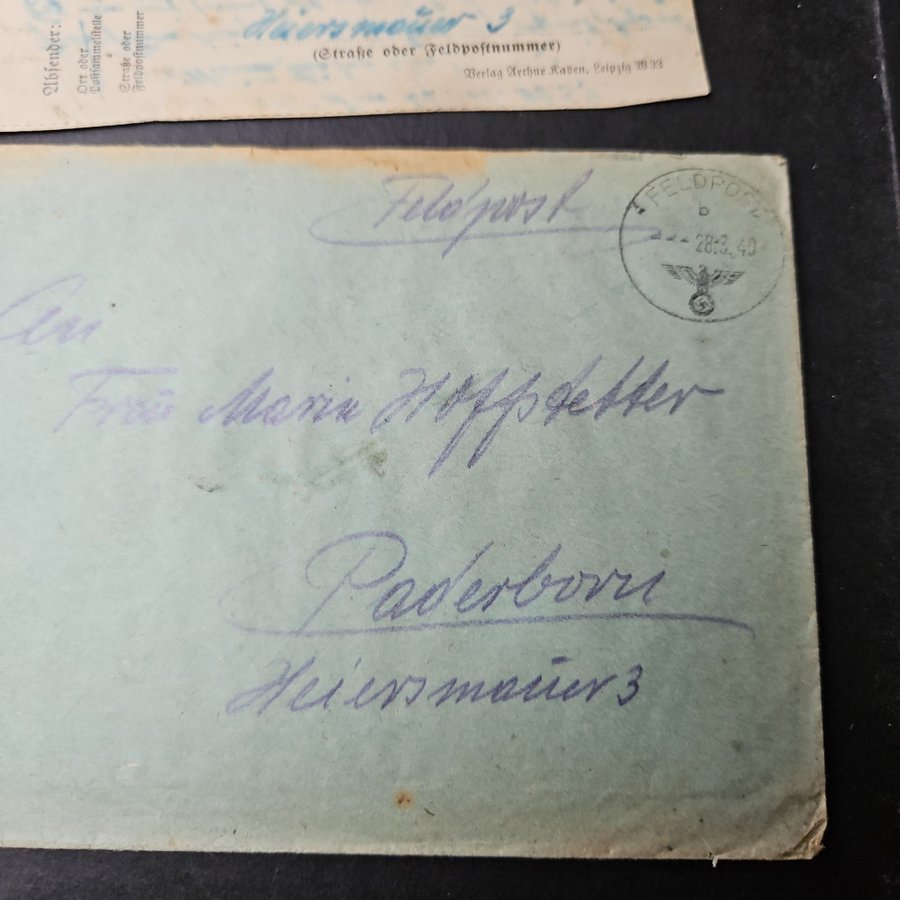 Heiersmauer 3
(Straße oder Feldpostnummer)
Verlag Arthur Kaden, Leipzig M 33
Absender:
Ort oder
Postsammelstelle
Straße oder
Feldpostnummer
Feldpost
FELDPOST
b
28.3.40
An
Frau Maria Hoffstetter
Paderborn
Heiersmauer 3